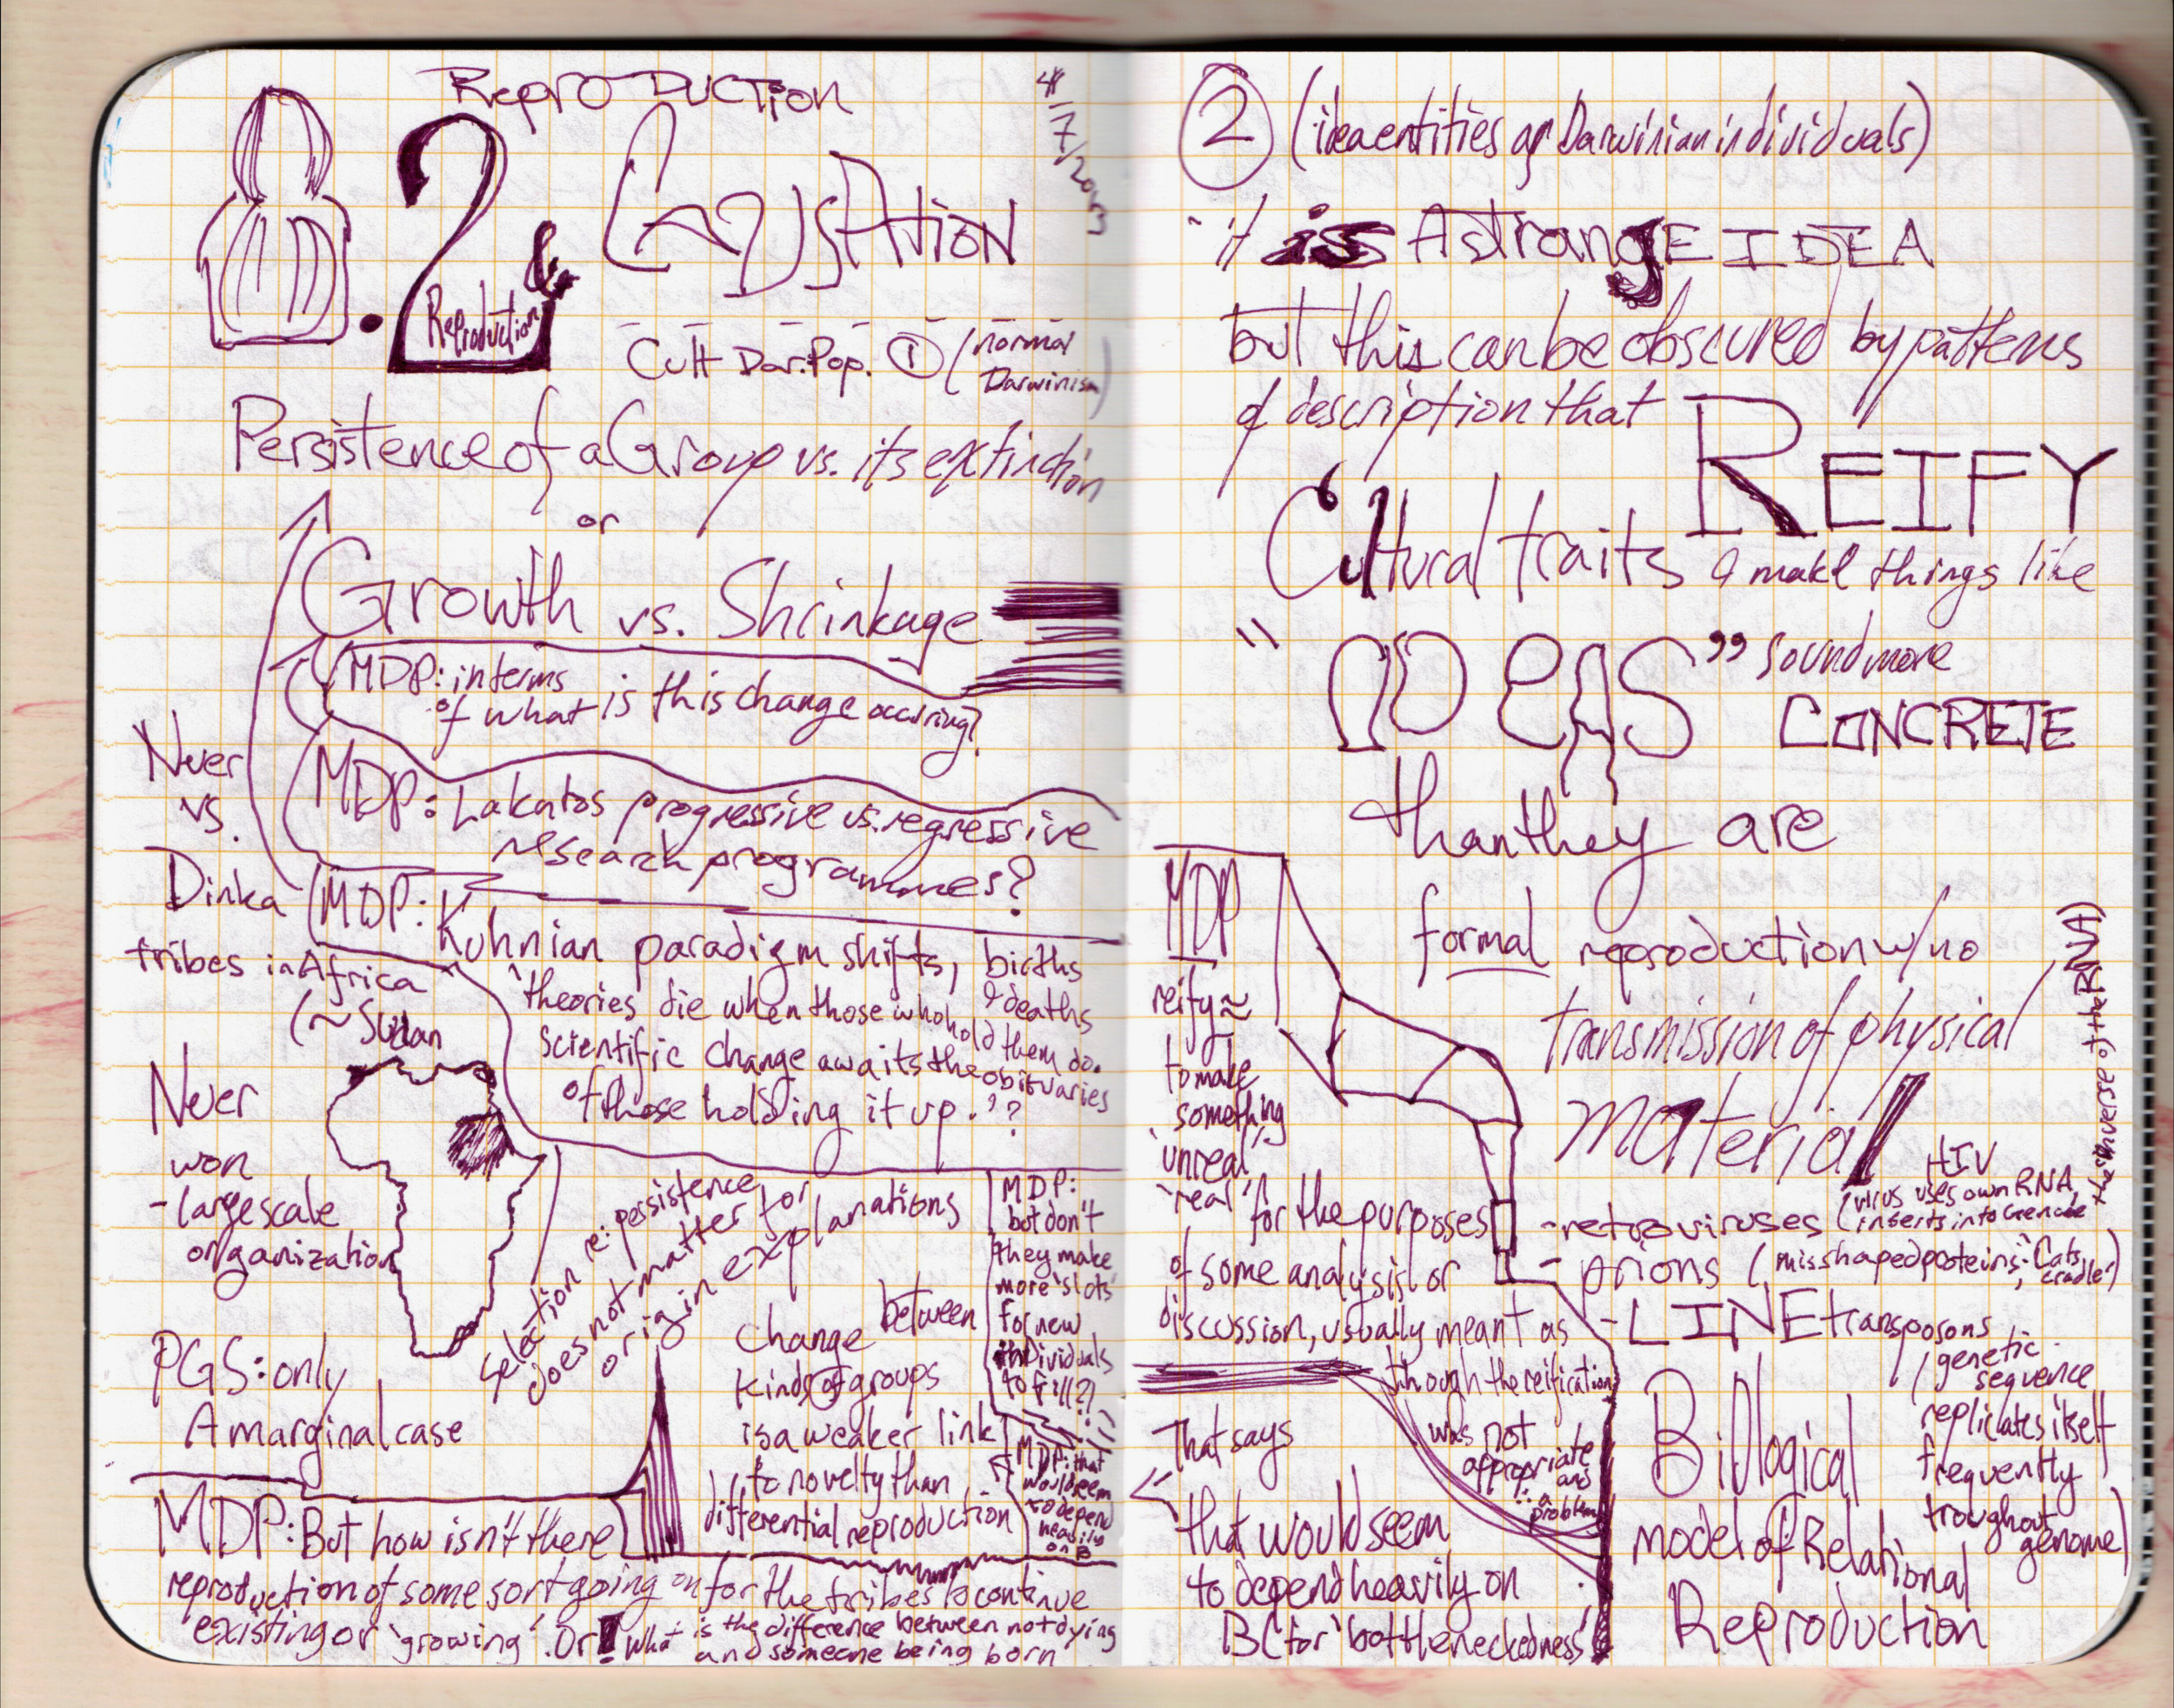 REPRODUCTION
4/7/2013
8.2 & CAUSATION
Reproduction
Cult Dar. Pop. ① (normal
Darwinism)
Persistence of a Group vs. its extinction
or
Growth vs. Shrinkage
MDP: in terms
of what is this change occuring?
MDP: Lakatos progressive vs. regressive
research programmes?
Nuer
vs.
Dinka
tribes in Africa
(~Sudan
MDP: Kuhnian paradigm shifts, births
& deaths
'theories die when those who hold them do.
Scientific change awaits the obituaries
of those holding it up.'?
Nuer
won
- large scale
organization
PGS: only
A marginal case
selection re: persistence
does not matter for
origin explanations
Change between
kinds of groups
is a weaker link
to novelty than
differential reproduction
MDP:
but don't
they make
more 'slots'
for new
individuals
to fill?
MDP: that
would seem
to depend
heavily
on B
MDP: But how isn't there
reproduction of some sort going on for the tribes to continue
existing or 'growing'. Or! What is the difference between not dying
and someone being born
② (idea entities as Darwinian individuals)
"it is A strangE IDEA
but this can be obscured by patterns
of description that REIFY
Cultural traits & make things like
"IDEAS" sound more
CONCRETE
than they are
MDP
reify ≈
to make
something
'unreal'
'real' for the purposes
of some analysis or
discussion, usually meant as
though the reification
was not
appropriate
and
∴ a
problem
formal reproduction w/no
transmission of physical
material
- retroviruses (HIV
virus uses own RNA,
inserts into Genome
the inverse of the RNA)
- prions (misshaped proteins: 'Cats cradle')
- LINE transposons
(genetic
sequence
replicates itself
frequently
troughout
genome)
Biological
model of Relational
Reproduction
That says
that would seem
to depend heavily on
B (for 'bottleneckedness'